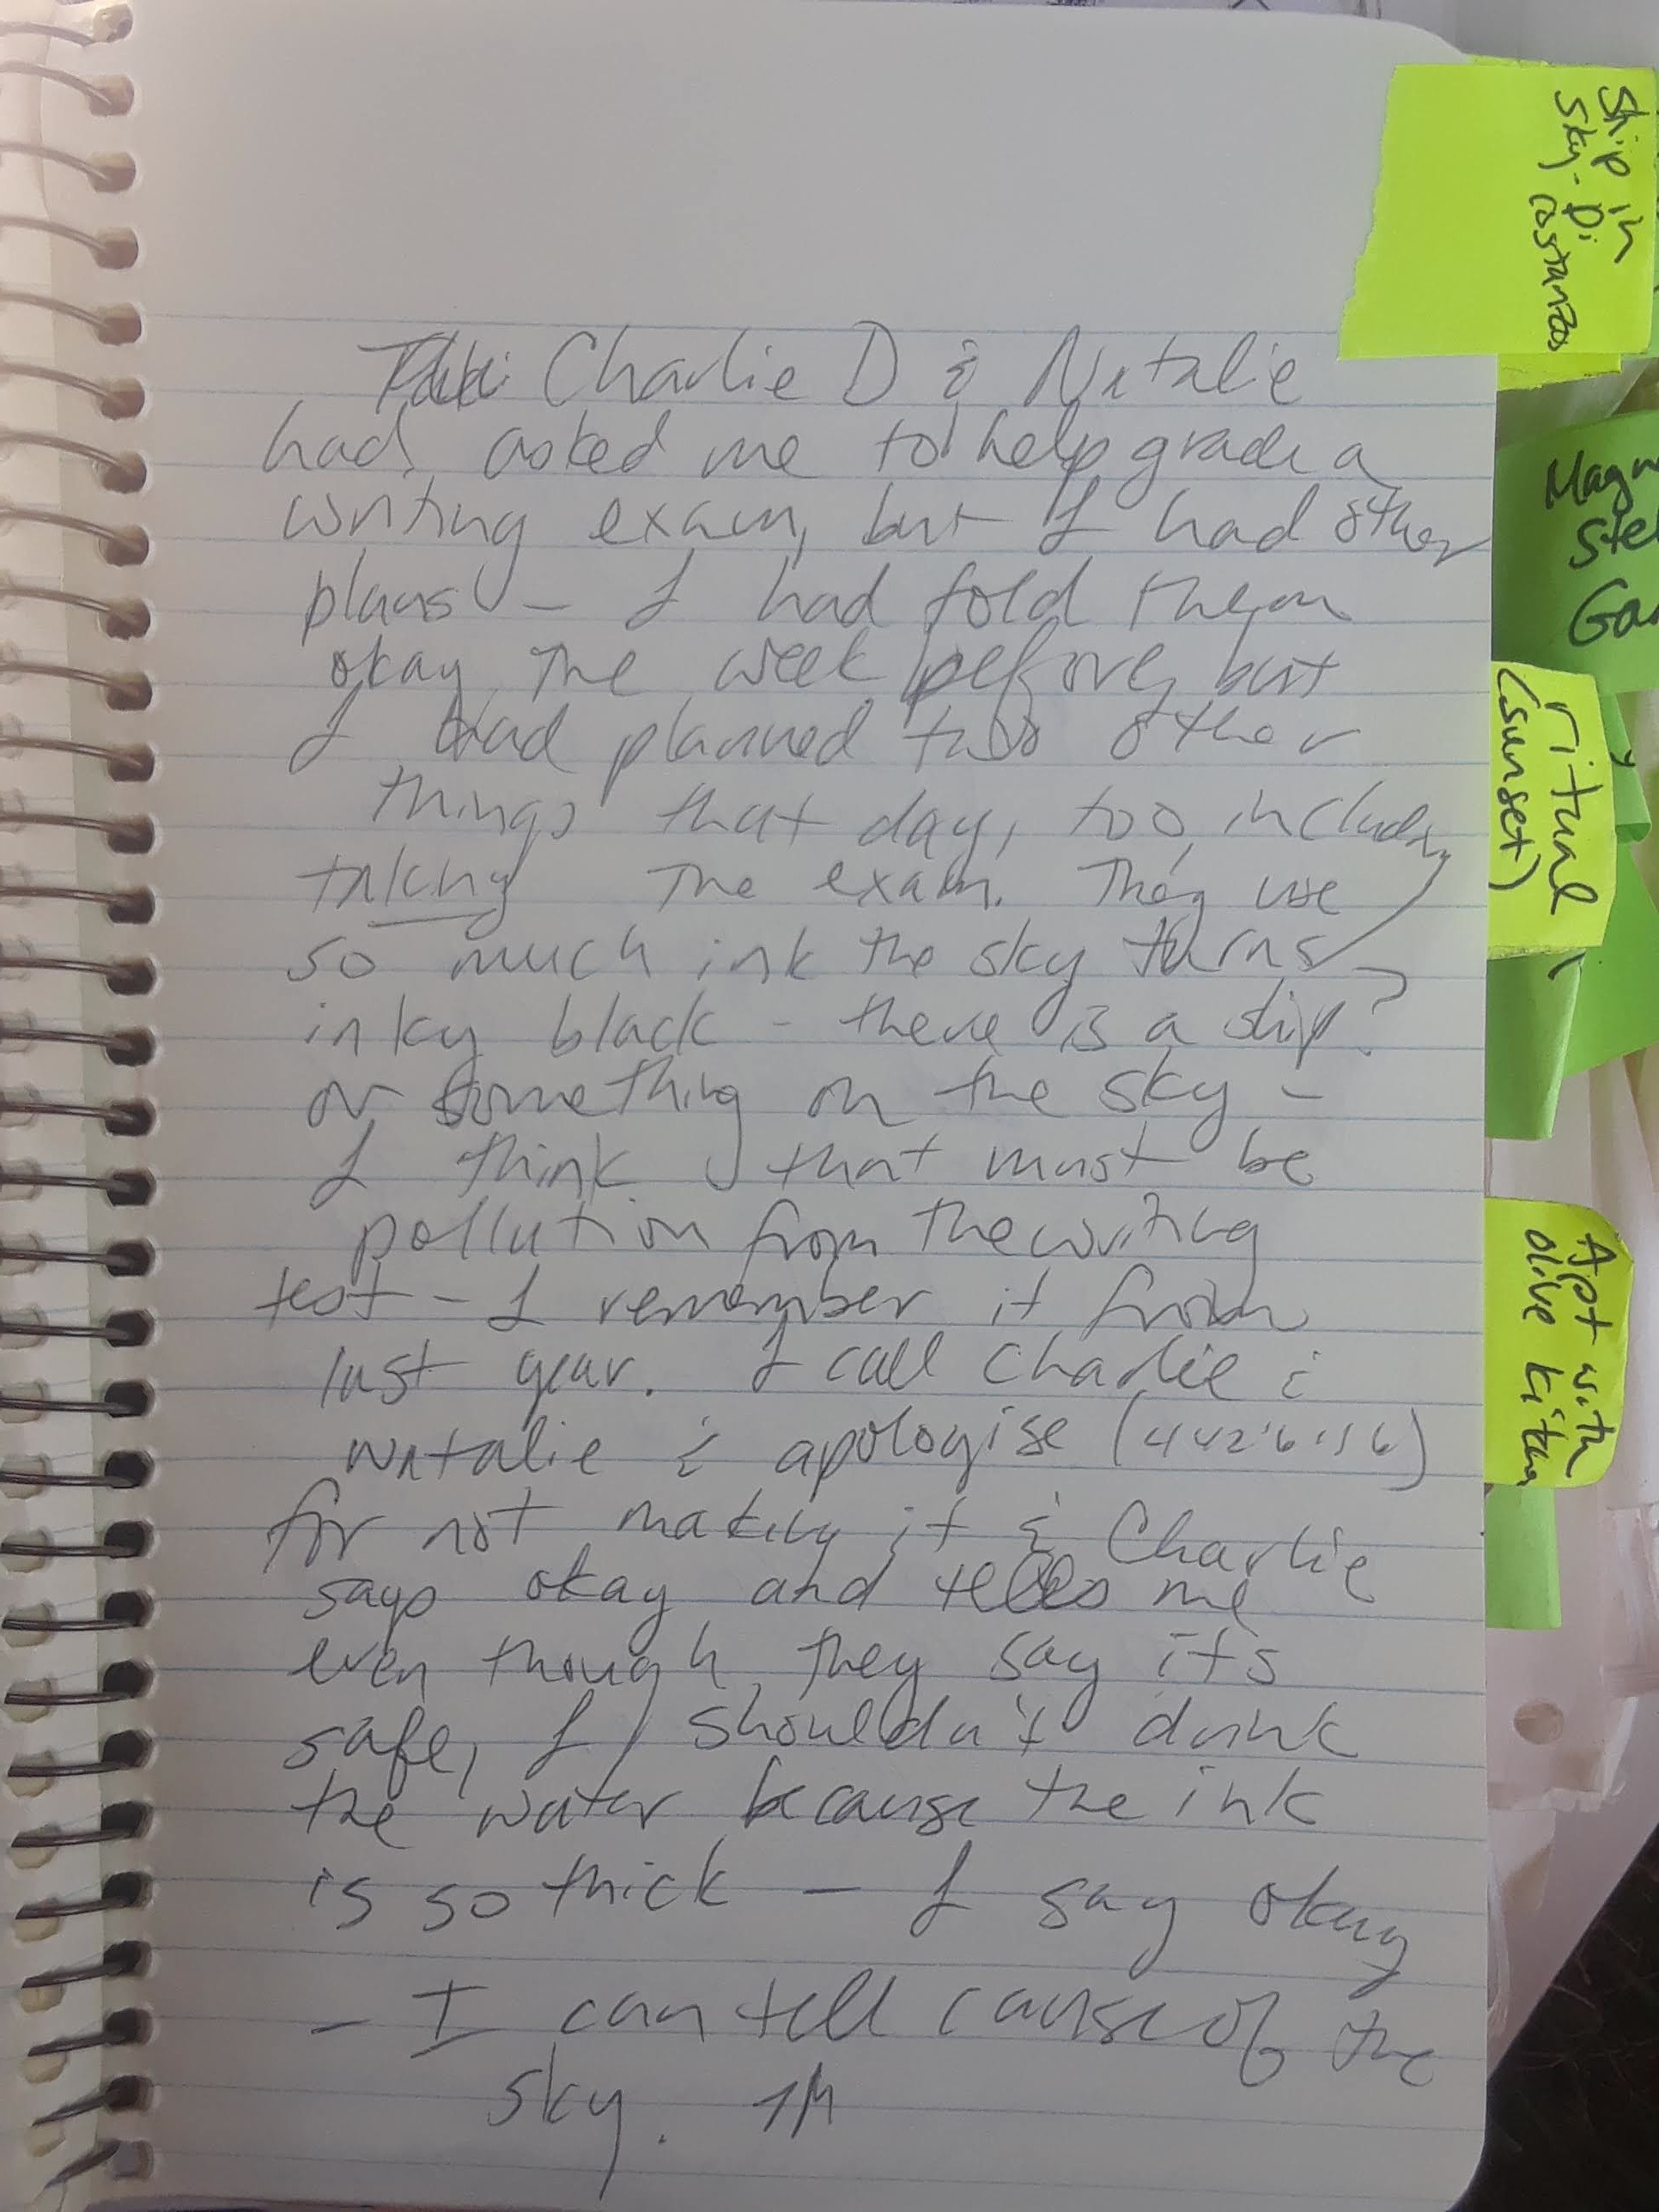 Charlie D & Natalie
had asked me to help grade a
writing exam, but I had other
plans - I had told them
okay the week before, but
I had planned two other
things that day, too, including
taking the exam. They use
so much ink the sky turns
inky black - there is a ship?
or something on the sky -
I think that must be
pollution from the writing
test - I remember it from
last year. I call Charlie &
Natalie & apologise
for not making it & Charlie
says okay and tells me
even though they say it's
safe, I shouldn't drink
the water because the ink
is so thick - I say okay
- I can tell cause of the
sky.
Ship in
sky - Di
Costanzos
Magn
Ste
Ga
ritual
(sunset)
Apt with
olive kitchen